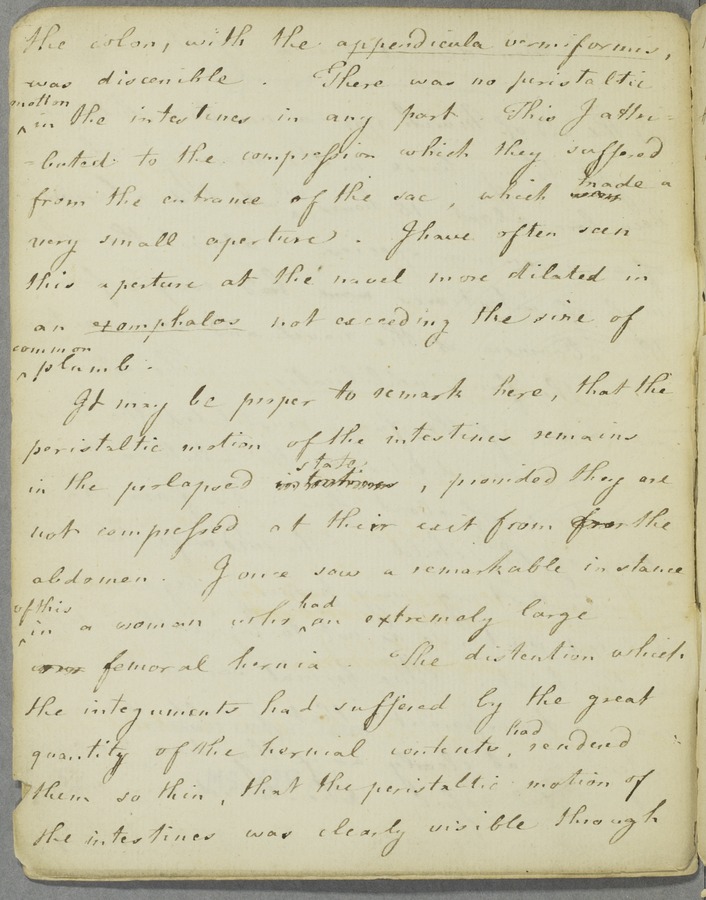 the colon, with the appendicula vermiformis,
was discenible . There was no peristaltic
motion
^ in the intestines in any part . This I attri-
-buted to the compression which they suffered
from the entrance of the sac , which made a
very small aperture . I have often seen
this aperture at the navel more dilated in
an exomphalos not exceeding the size of
common
^ plumb .
It may be proper to remark here, that the
peristaltic motion of the intestines remains
state
in the prolapsed intestines , provided they are
not compressed at their exit from from the
abdomen . I once saw a remarkable instance
of this had
^ in a woman who ^ an extremely large
femoral hernia . The distention which
the integuments had suffered by the great
had
quantity of the hernial contents , rendered
them so thin , that the peristaltic motion of
the intestines was clearly visible through